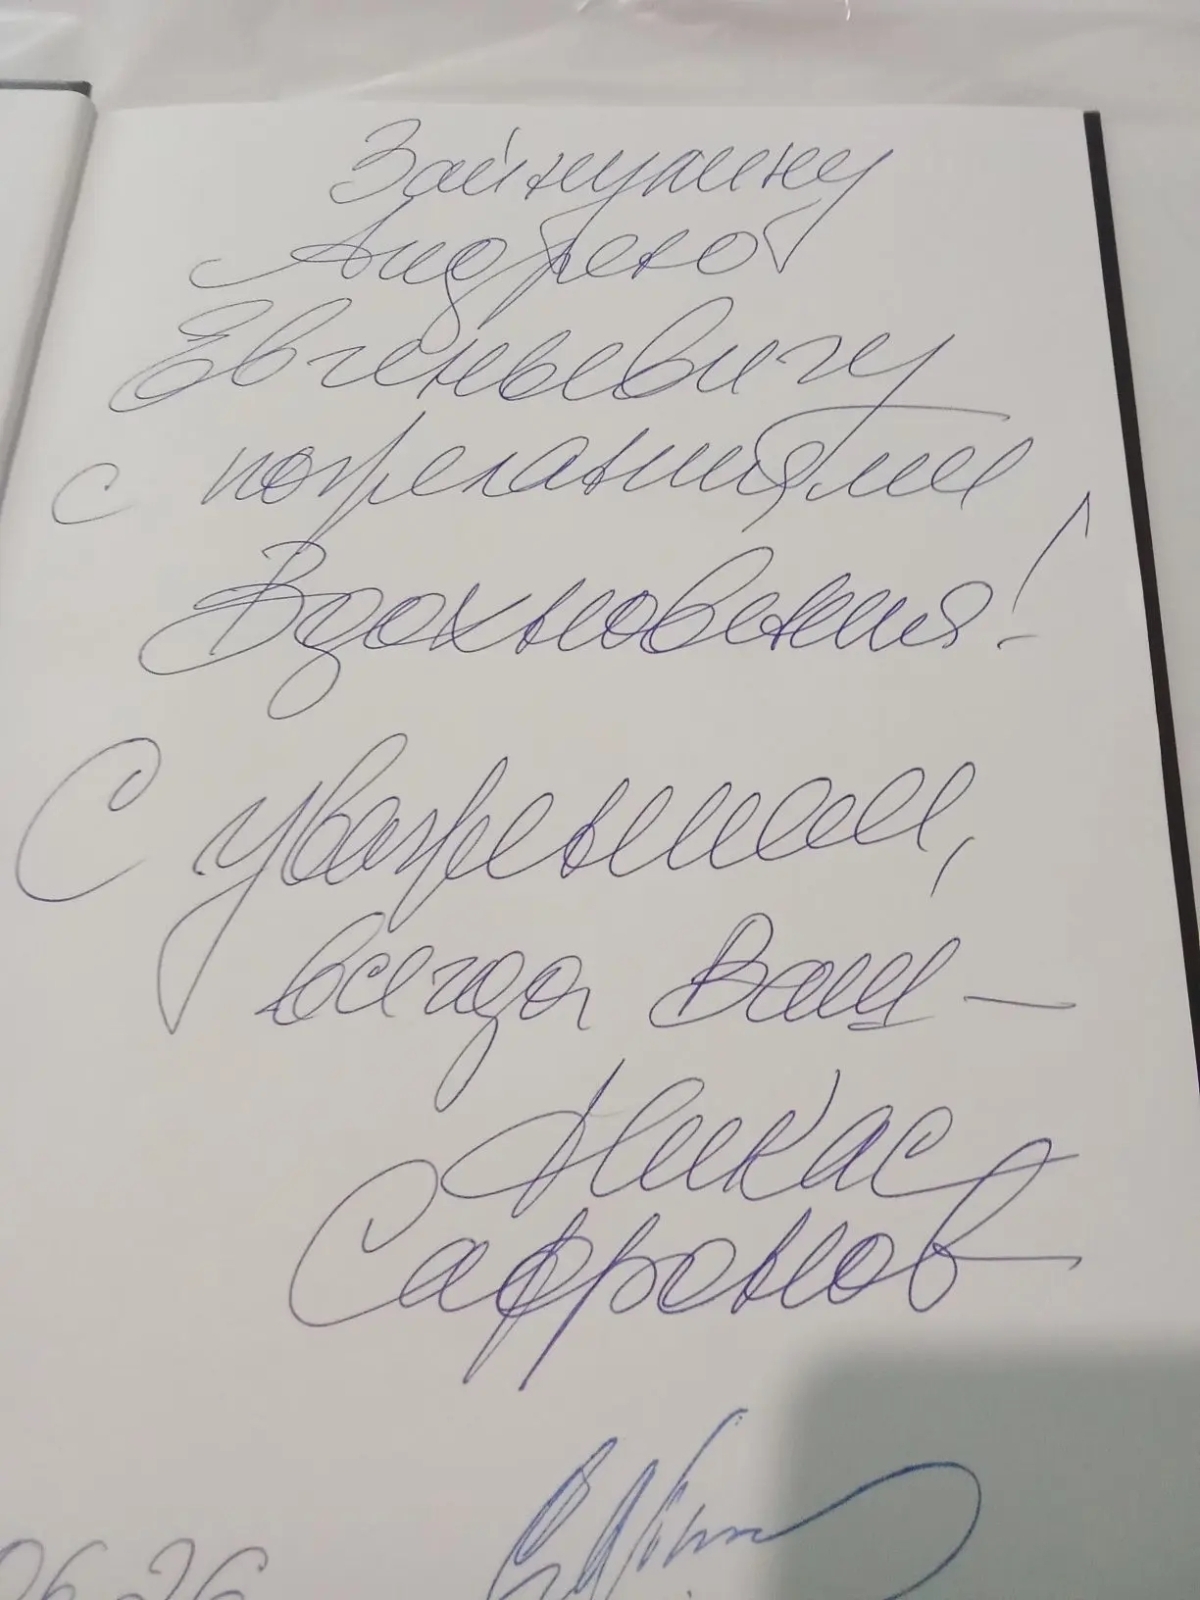 Зайнулину
Андрею
Евгеньевичу
с пожеланиями
Вдохновения!
С уважением,
всегда Ваш —
Никас
Сафронов
06.26